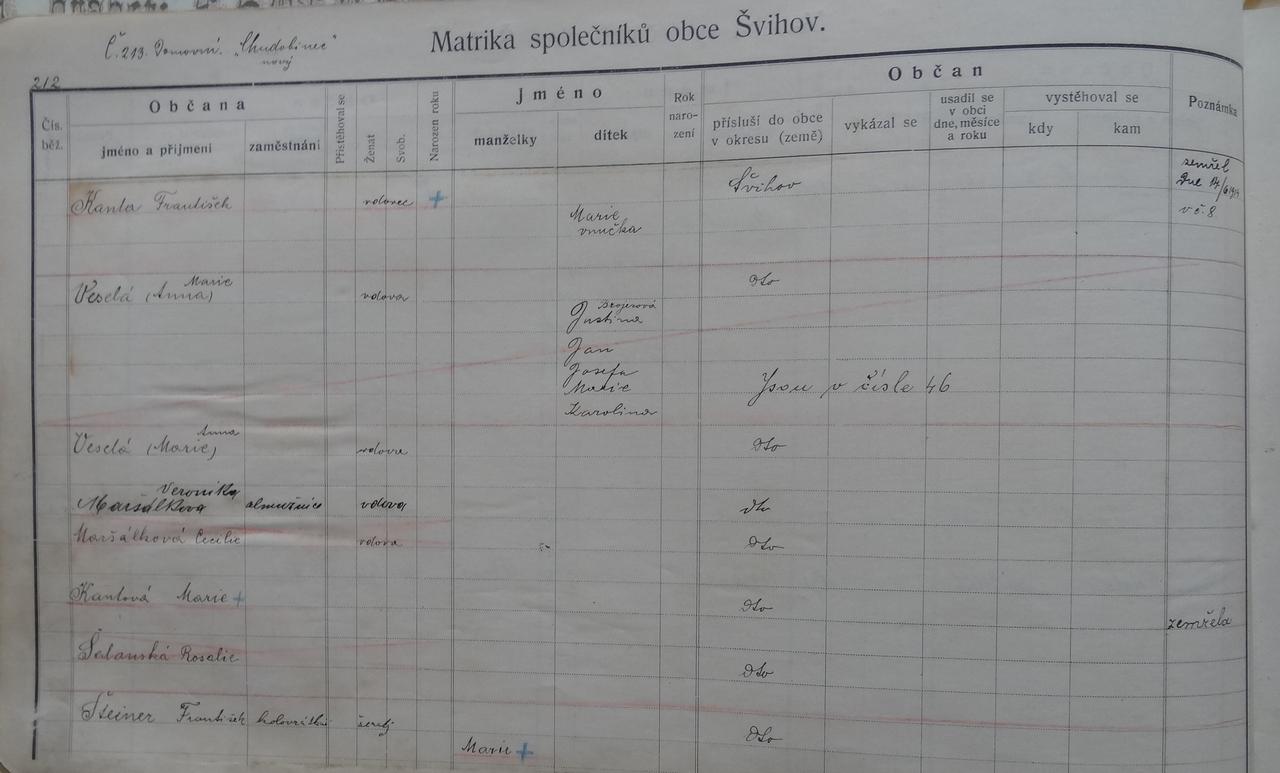 Č. 213. Domovní. "Chudobinec"
nový
Matrika společníků obce Švihov.
212
Čís. běž.
Občana
jméno a příjmení
zaměstnání
Přistěhoval se
Ženat
Svob.
Narozen roku
Jméno
manželky
dítek
Rok naro- zení
Občan
přísluší do obce v okresu (země)
vykázal se
usadil se v obci dne, měsíce a roku
vystěhoval se
kdy
kam
Poznámka
Kanta František vdovec + Švihov zemřel
Dne 14/6
v č. 8
Marie
vnučka
Marie
Veselá (Anna) vdova dto
Justina
Jan
Josefa
Marie Jsou v čísle 46
Karolina
Anna
Veselá (Marie) vdova dto
Veronika
Maršálková almužnice vdova dto
Maršálková Cecilie vdova dto
Kantová Marie + dto zemřela
Rosalie dto
Šteiner František ženatý dto
Marie +